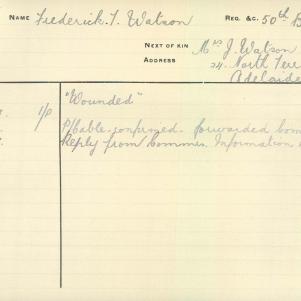 NAME Frederick. T. Watson
REG. &C. 50th B
NEXT OF KIN Mrs J. Watson
ADDRESS 24 North Ter
Adelaide
1/P "Wounded"
P/Cable confirmed. forwarded
Reply from Commns. Information